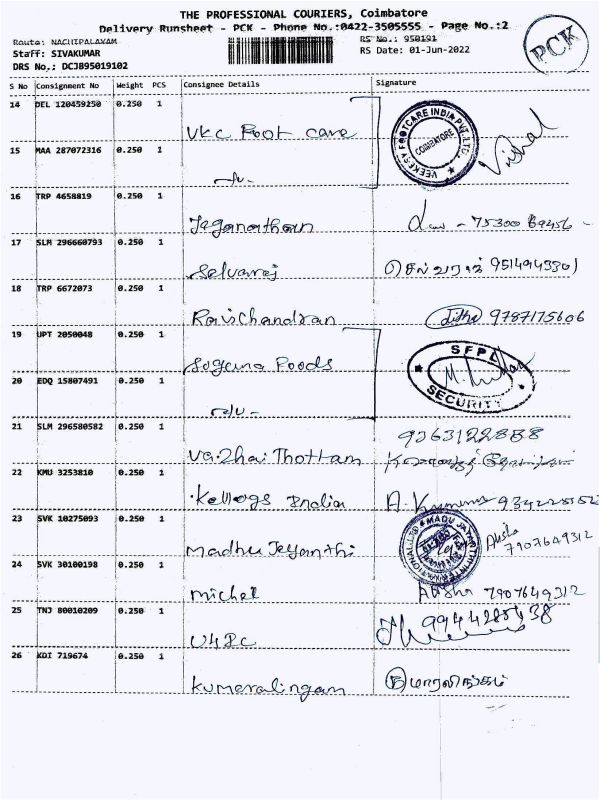 THE PROFESSIONAL COURIERS, Coimbatore
Delivery Runsheet - PCK - Phone No.:0422-3505555 - Page No.:2
Route: NACHIPALAYAM
RS No.: 950191
Staff: SIVAKUMAR
RS Date: 01-Jun-2022
DRS No.: DCJB95019102
PCK
S No Consignment No Weight PCS Consignee Details Signature
14 DEL 120459250 0.250 1
VKC Foot care
VEEKESY FOOTCARE INDIA PVT. LTD.
COIMBATORE
Vishal
15 MAA 287072316 0.250 1
16 TRP 4658819 0.250 1
Jaganathan
17 SLM 296660793 0.250 1
Selvaraj
செல்வராஜ்
18 TRP 6672073 0.250 1
Ravichandran
9787175606
19 UPT 2050048 0.250 1
Suguna Foods
SFPL
SECURITY
20 EDQ 15807491 0.250 1
21 SLM 296580582 0.250 1
Vazhai Thottam
22 KMU 3253810 0.250 1
Kellogs India
23 SVK 10275093 0.250 1
Madhu Jeyanthi
7907649312
24 SVK 30100198 0.250 1
Michel
7907649312
25 TNJ 80010209 0.250 1
26 KDI 719674 0.250 1
Kumaralingam